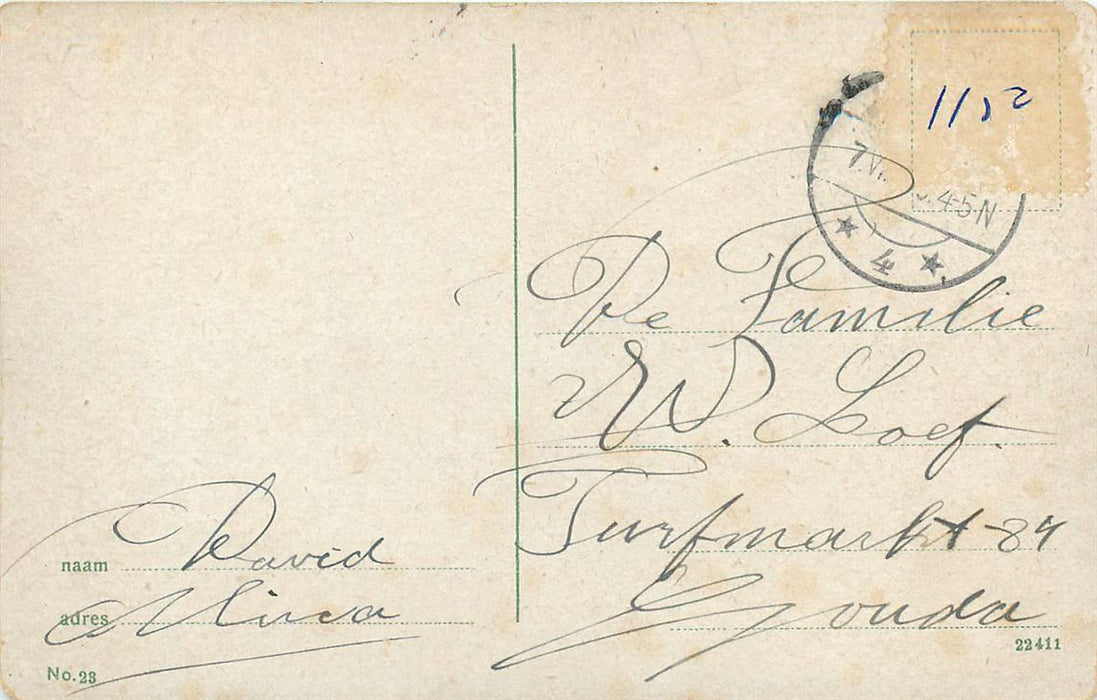 1152
7.VI. 4-5N
4
De Familie
W. Loef.
Turfmarkt 84
Gouda
naam David
adres Mina
22411
No. 23